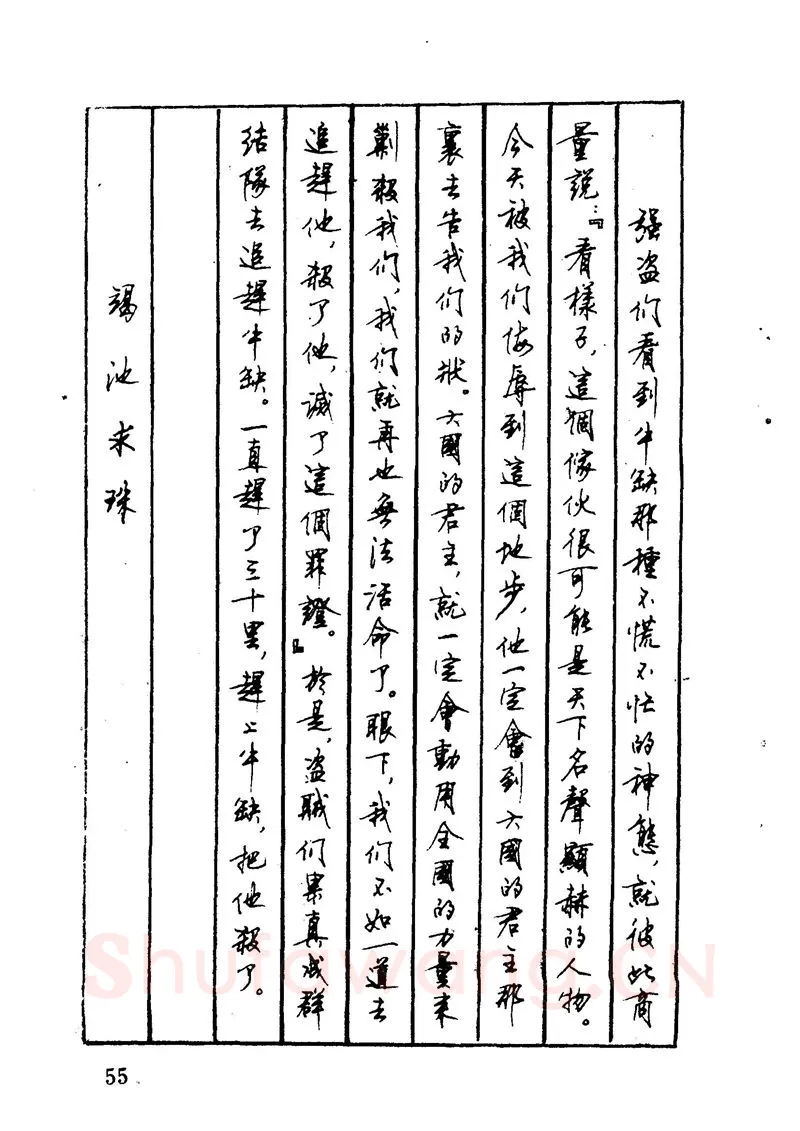 强盗们看到牛缺那種不慌不忙的神態，就彼此商
量說：『看樣子，這個傢伙很可能是天下名聲顯赫的人物。
今天被我们侮辱到這個地步，他一定會到六國的君主那
裏去告我们的狀。六國的君主，就一定會動用全國的力量来
剿殺我们，我们就再也無法活命了。眼下，我们不如一道去
追趕他，殺了他，滅了這個罪證。』於是，盗賊们果真成群
结隊去追趕牛缺。一直趕了三十里，趕上牛缺，把他殺了。
竭池求珠
55
Shufawang.CN